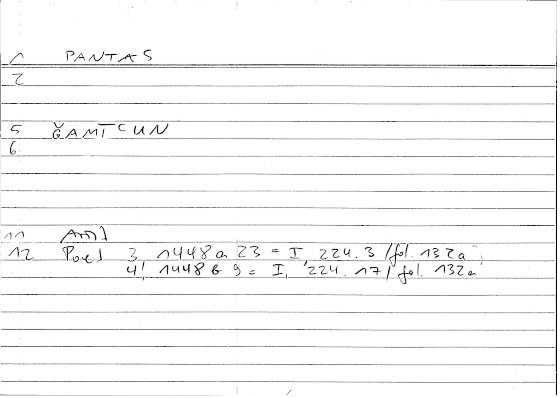 1 PANTAS
2
5 ǦAMTCUN
6
11
12 3, 1448 a 23 = I, 224.3 / fol. 132a;
4, 1448 b 9 = I, 224.17 / fol. 132a